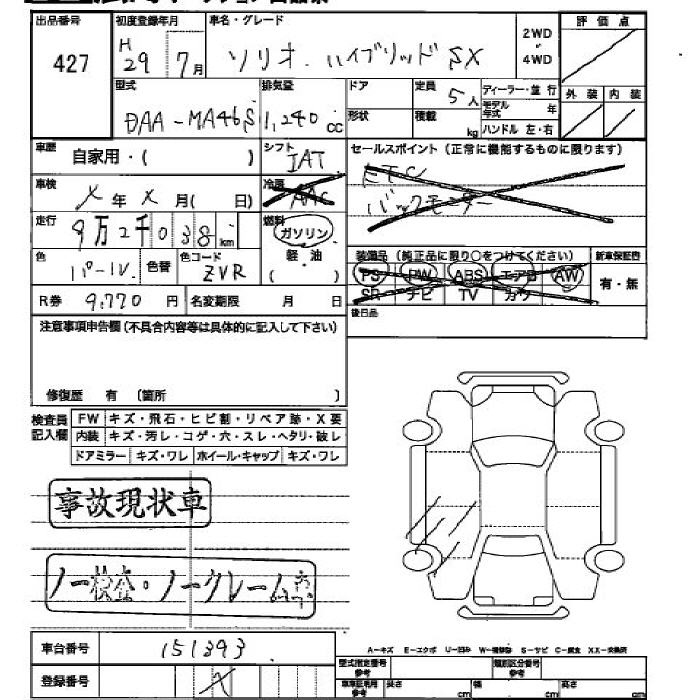 出品番号 初度登録年月 車名・グレード 2WD 4WD 評価点
427 H29 7月 ソリオ ハイブリッド SX
型式 排気量 ドア 定員 5人 ディーラー・並行 外装 内装
DAA-MA46S 1,240cc 形状 積載 kg モデル年式 年
ハンドル 左・右
車歴 自家用・( ) シフト IAT セールスポイント(正常に機能するものに限ります)
車検 X年X月( 日) 冷房 AAC ETC
バックモニター
走行 9万2千038km 燃料 ガソリン
軽油
( )
色 パール 色替 色コード ZVR
装備品(純正品に限り○をつけてください) 新車保証書
PS PW ABS エアB AW 有・無
SR ナビ TV カワ
R券 9,770円 名変期限 月 日
後日品
注意事項申告欄(不具合内容等は具体的に記入して下さい)
修復歴 有 〔箇所 〕
検査員記入欄 FW キズ・飛石・ヒビ割・リペア跡・X要
内装 キズ・汚レ・コゲ・穴・スレ・ヘタリ・破レ
ドアミラー キズ・ワレ ホイール・キャップ キズ・ワレ
事故現状車
ノー検査・ノークレーム
車台番号 151393
A-キズ E-エクボ U-凹み W-補修跡 S-サビ C-腐食 XX-交換済
登録番号 X
型式指定番号 参考 類別区分番号 参考
車庫証明用 参考 長さ cm 幅 cm 高さ cm